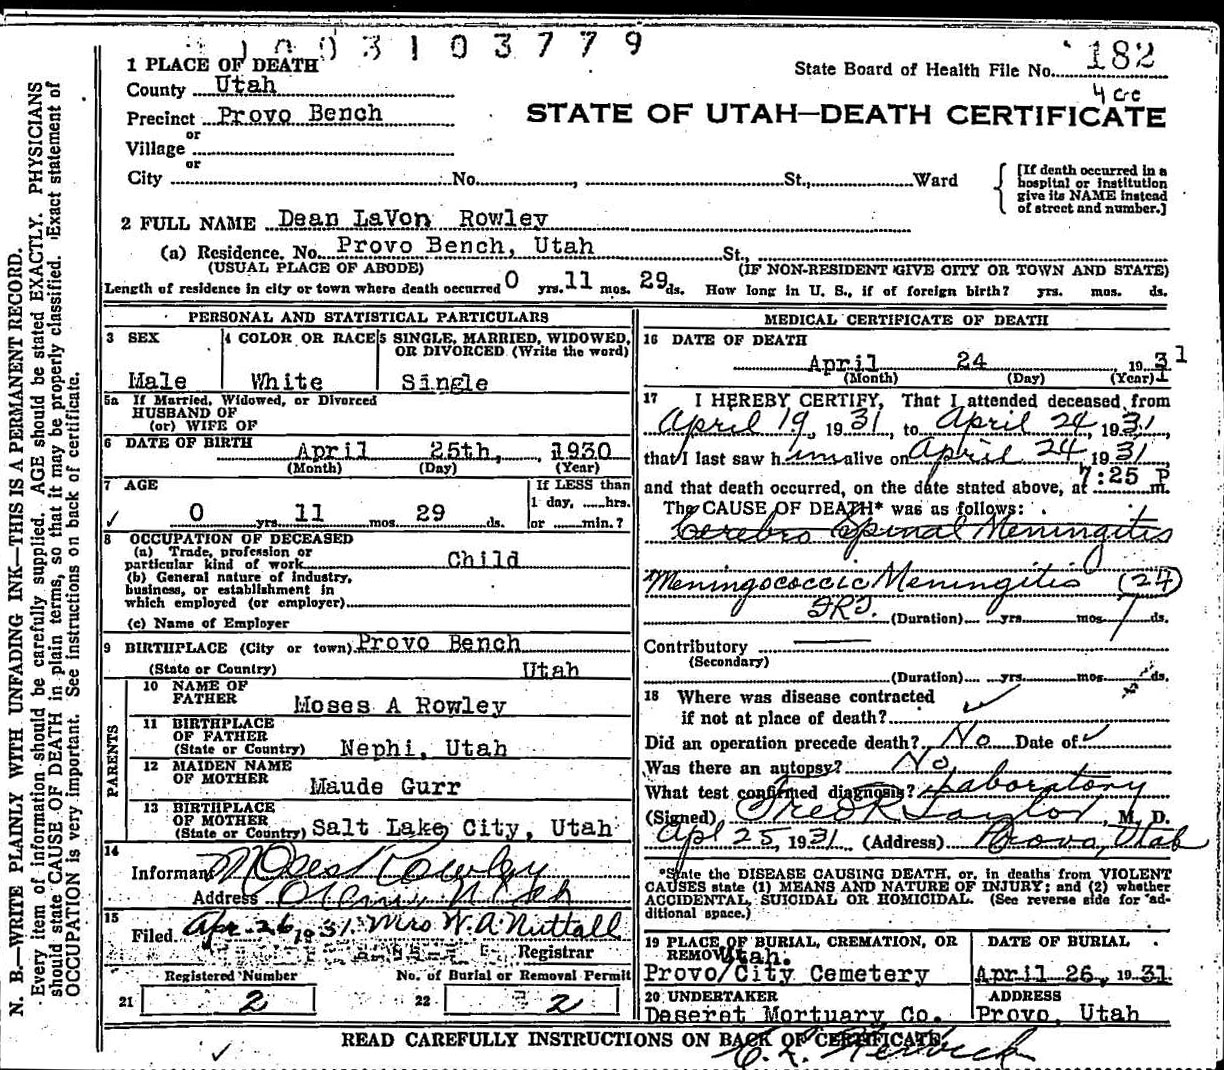 1003103779
State Board of Health File No. 182
4 c-c
STATE OF UTAH—DEATH CERTIFICATE
1 PLACE OF DEATH
County Utah
Precinct Provo Bench
or
Village
or
City No. , St., Ward
[If death occurred in a
hospital or institution
give its NAME instead
of street and number.]
2 FULL NAME Dean LaVon Rowley
(a) Residence. No. Provo Bench, Utah St.,
(USUAL PLACE OF ABODE) (IF NON-RESIDENT GIVE CITY OR TOWN AND STATE)
Length of residence in city or town where death occurred 0 yrs. 11 mos. 29 ds. How long in U. S., if of foreign birth? yrs. mos. ds.
PERSONAL AND STATISTICAL PARTICULARS
3 SEX
Male
4 COLOR OR RACE
White
5 SINGLE, MARRIED, WIDOWED,
OR DIVORCED (Write the word)
Single
5a If Married, Widowed, or Divorced
HUSBAND OF
(or) WIFE OF
6 DATE OF BIRTH April 25th, 1930
(Month) (Day) (Year)
7 AGE
0 yrs. 11 mos. 29 ds.
If LESS than
1 day, ......hrs.
or ......min.?
8 OCCUPATION OF DECEASED
(a) Trade, profession or
particular kind of work Child
(b) General nature of industry,
business, or establishment in
which employed (or employer)
(c) Name of Employer
9 BIRTHPLACE (City or town) Provo Bench
(State or Country) Utah
PARENTS
10 NAME OF
FATHER Moses A Rowley
11 BIRTHPLACE
OF FATHER
(State or Country) Nephi, Utah
12 MAIDEN NAME
OF MOTHER Maude Gurr
13 BIRTHPLACE
OF MOTHER
(State or Country) Salt Lake City, Utah
14
Informant Moses Rowley
Address Utah
15
Filed Apr. 26 1931. Mrs W. A. Nuttall
Registrar
Registered Number No. of Burial or Removal Permit
21 2 22 2
MEDICAL CERTIFICATE OF DEATH
16 DATE OF DEATH
April 24 1931
(Month) (Day) (Year)
17 I HEREBY CERTIFY, That I attended deceased from
April 19, 1931, to April 24, 1931,
that I last saw him alive on April 24, 1931
and that death occurred, on the date stated above, at 7:25 P m.
The CAUSE OF DEATH* was as follows:
Cerebro Spinal Meningitis
Meningococcic Meningitis (24)
(Duration) yrs. mos. 7 ds.
Contributory
(Secondary)
(Duration) yrs. mos. ds.
18 Where was disease contracted
if not at place of death?
Did an operation precede death? No Date of
Was there an autopsy? No
What test confirmed diagnosis? Laboratory
(Signed) Fred R Taylor, M. D.
Apl 25, 1931. (Address) Provo, Utah
*State the DISEASE CAUSING DEATH, or, in deaths from VIOLENT
CAUSES state (1) MEANS AND NATURE OF INJURY; and (2) whether
ACCIDENTAL, SUICIDAL OR HOMICIDAL. (See reverse side for ad-
ditional space.)
19 PLACE OF BURIAL, CREMATION, OR
REMOVAL Utah.
Provo/City Cemetery
DATE OF BURIAL
April 26, 1931.
20 UNDERTAKER
Deseret Mortuary Co.
ADDRESS
Provo, Utah
READ CAREFULLY INSTRUCTIONS ON BACK OF CERTIFICATE.
N. B.—WRITE PLAINLY WITH UNFADING INK—THIS IS A PERMANENT RECORD.
Every item of information should be carefully supplied. AGE should be stated EXACTLY. PHYSICIANS
should state CAUSE OF DEATH in plain terms, so that it may be properly classified. Exact statement of
OCCUPATION is very important. See instructions on back of certificate.